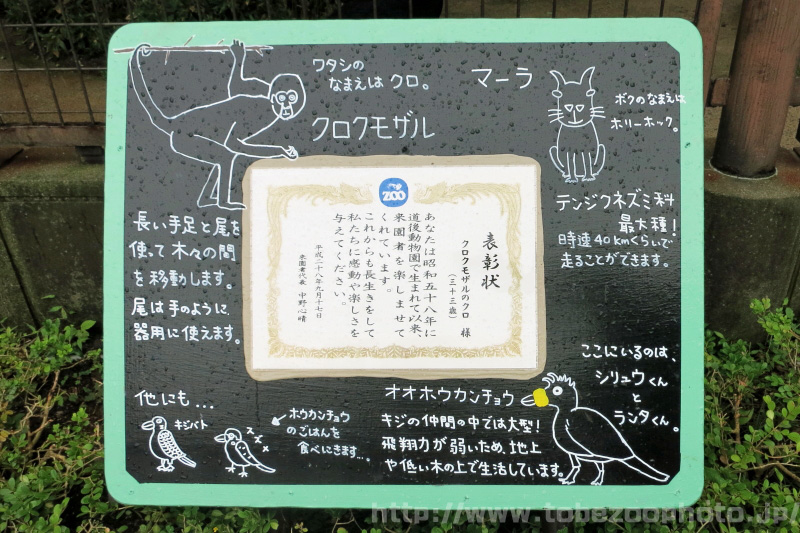 ワタシの
なまえは クロ。
クロクモザル
マーラ
ボクのなまえは
ホリーホック。
テンジクネズミ科
最大種!
時速40kmくらいで
走ることができます。
長い手足と尾を
使って木々の間
を移動します。
尾は手のように
器用に使えます。
ZOO
表彰状
クロクモザルのクロ 様
(三十三歳)
あなたは昭和五十八年に
道後動物園で生まれて以来、
来園者を楽しませて
くれています。
これからも長生きをして
私たちに感動や楽しさを
与えてください。
平成二十八年九月十七日
来園者代表 中野心晴
他にも...
キジバト
スズメ
ホウカンチョウ
のごはんを
食べにきます...。
オオホウカンチョウ
キジの仲間の中では大型!
飛翔力が弱いため、地上
や低い木の上で生活しています。
ここにいるのは、
シリュウくん
と
ランタくん。
http://www.tobezoophoto.jp/